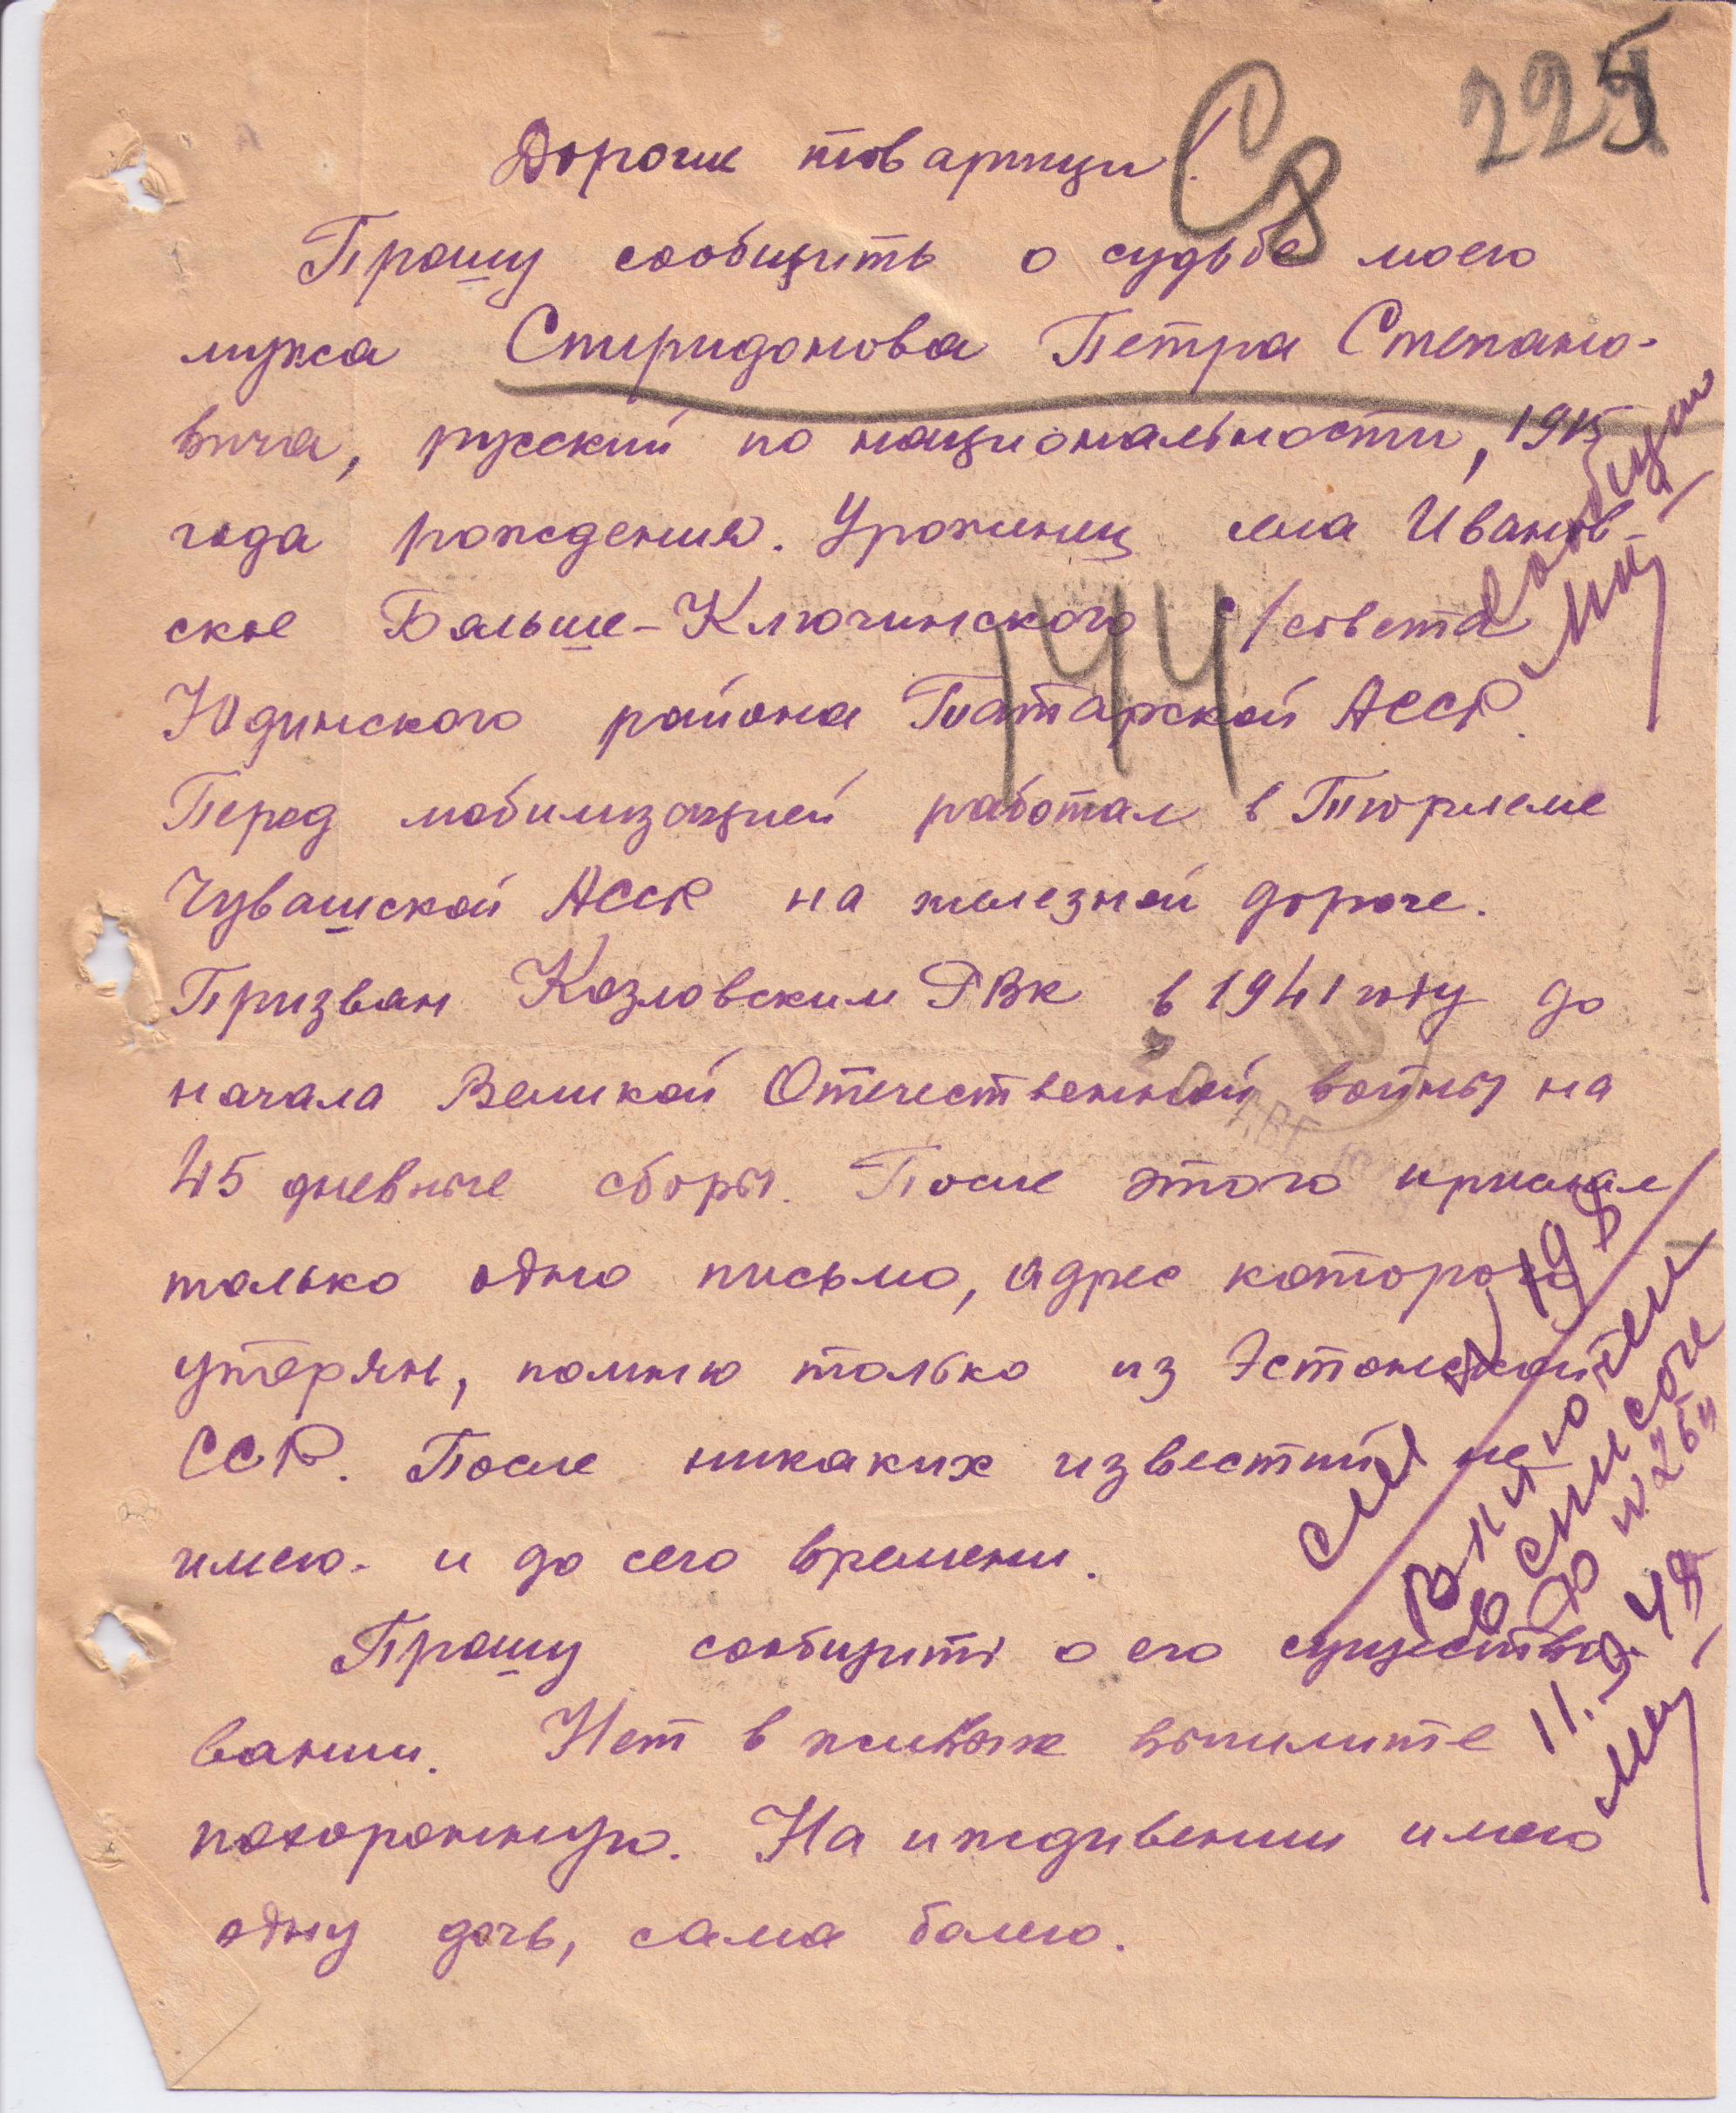 225
С8
Дорогие товарищи!
Прошу сообщить о судьбе моего
мужа Спиридонова Петра Степано-
вича, русский по национальности, 1915
года рождения. Уроженец села Иванов-
ское Больше-Ключинского с/совета
Юдинского района Татарской АССР.
Перед мобилизацией работал в Тюрлеме
Чувашской АССР на железной дороге.
Призван Козловским РВК в 1941 году до
начала Великой Отечественной войны на
45 дневные сборы. После этого прислал
только одно письмо, адрес которого
утерян, помню только из Эстонской
ССР. После никаких известий не
имею. и до сего времени.
Прошу сообщить о его существо-
вании. Нет в живых вышлите
похоронную. На иждивении имею
одну дочь, сама болею.
144
Включен
в списке
11.9.48